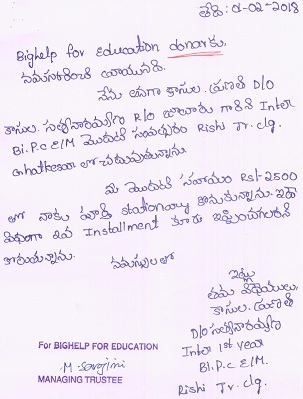 తేది: 01-02-2018
Bighelp for Education donorకు,
నమస్కరించి వ్రాయునది.
నేను అనగా కాసుల. ప్రణతి D/O
కాసుల. సత్యనారాయణ R/O గారికి Inter
Bi.P.C E/M మొదటి సంవత్సరం Rishi Jr. clg.
Ghatkesar లో చదువుతున్నాను.
మీ మొదటి సహాయం Rs/-2500
లో నాకు stationary కొనుక్కున్నాను. ఇదే
విధంగా 2వ Installment కూడా ఇప్పించగలరని
కోరుచున్నాను.
నమస్సులతో
ఇట్లు
తమ విధేయులు,
కాసుల. ప్రణతి
D/O సత్యనారాయణ
Inter 1st year
Bi.P.C E/M.
Rishi Jr. clg.
For BIGHELP FOR EDUCATION
M. Sarojini
MANAGING TRUSTEE